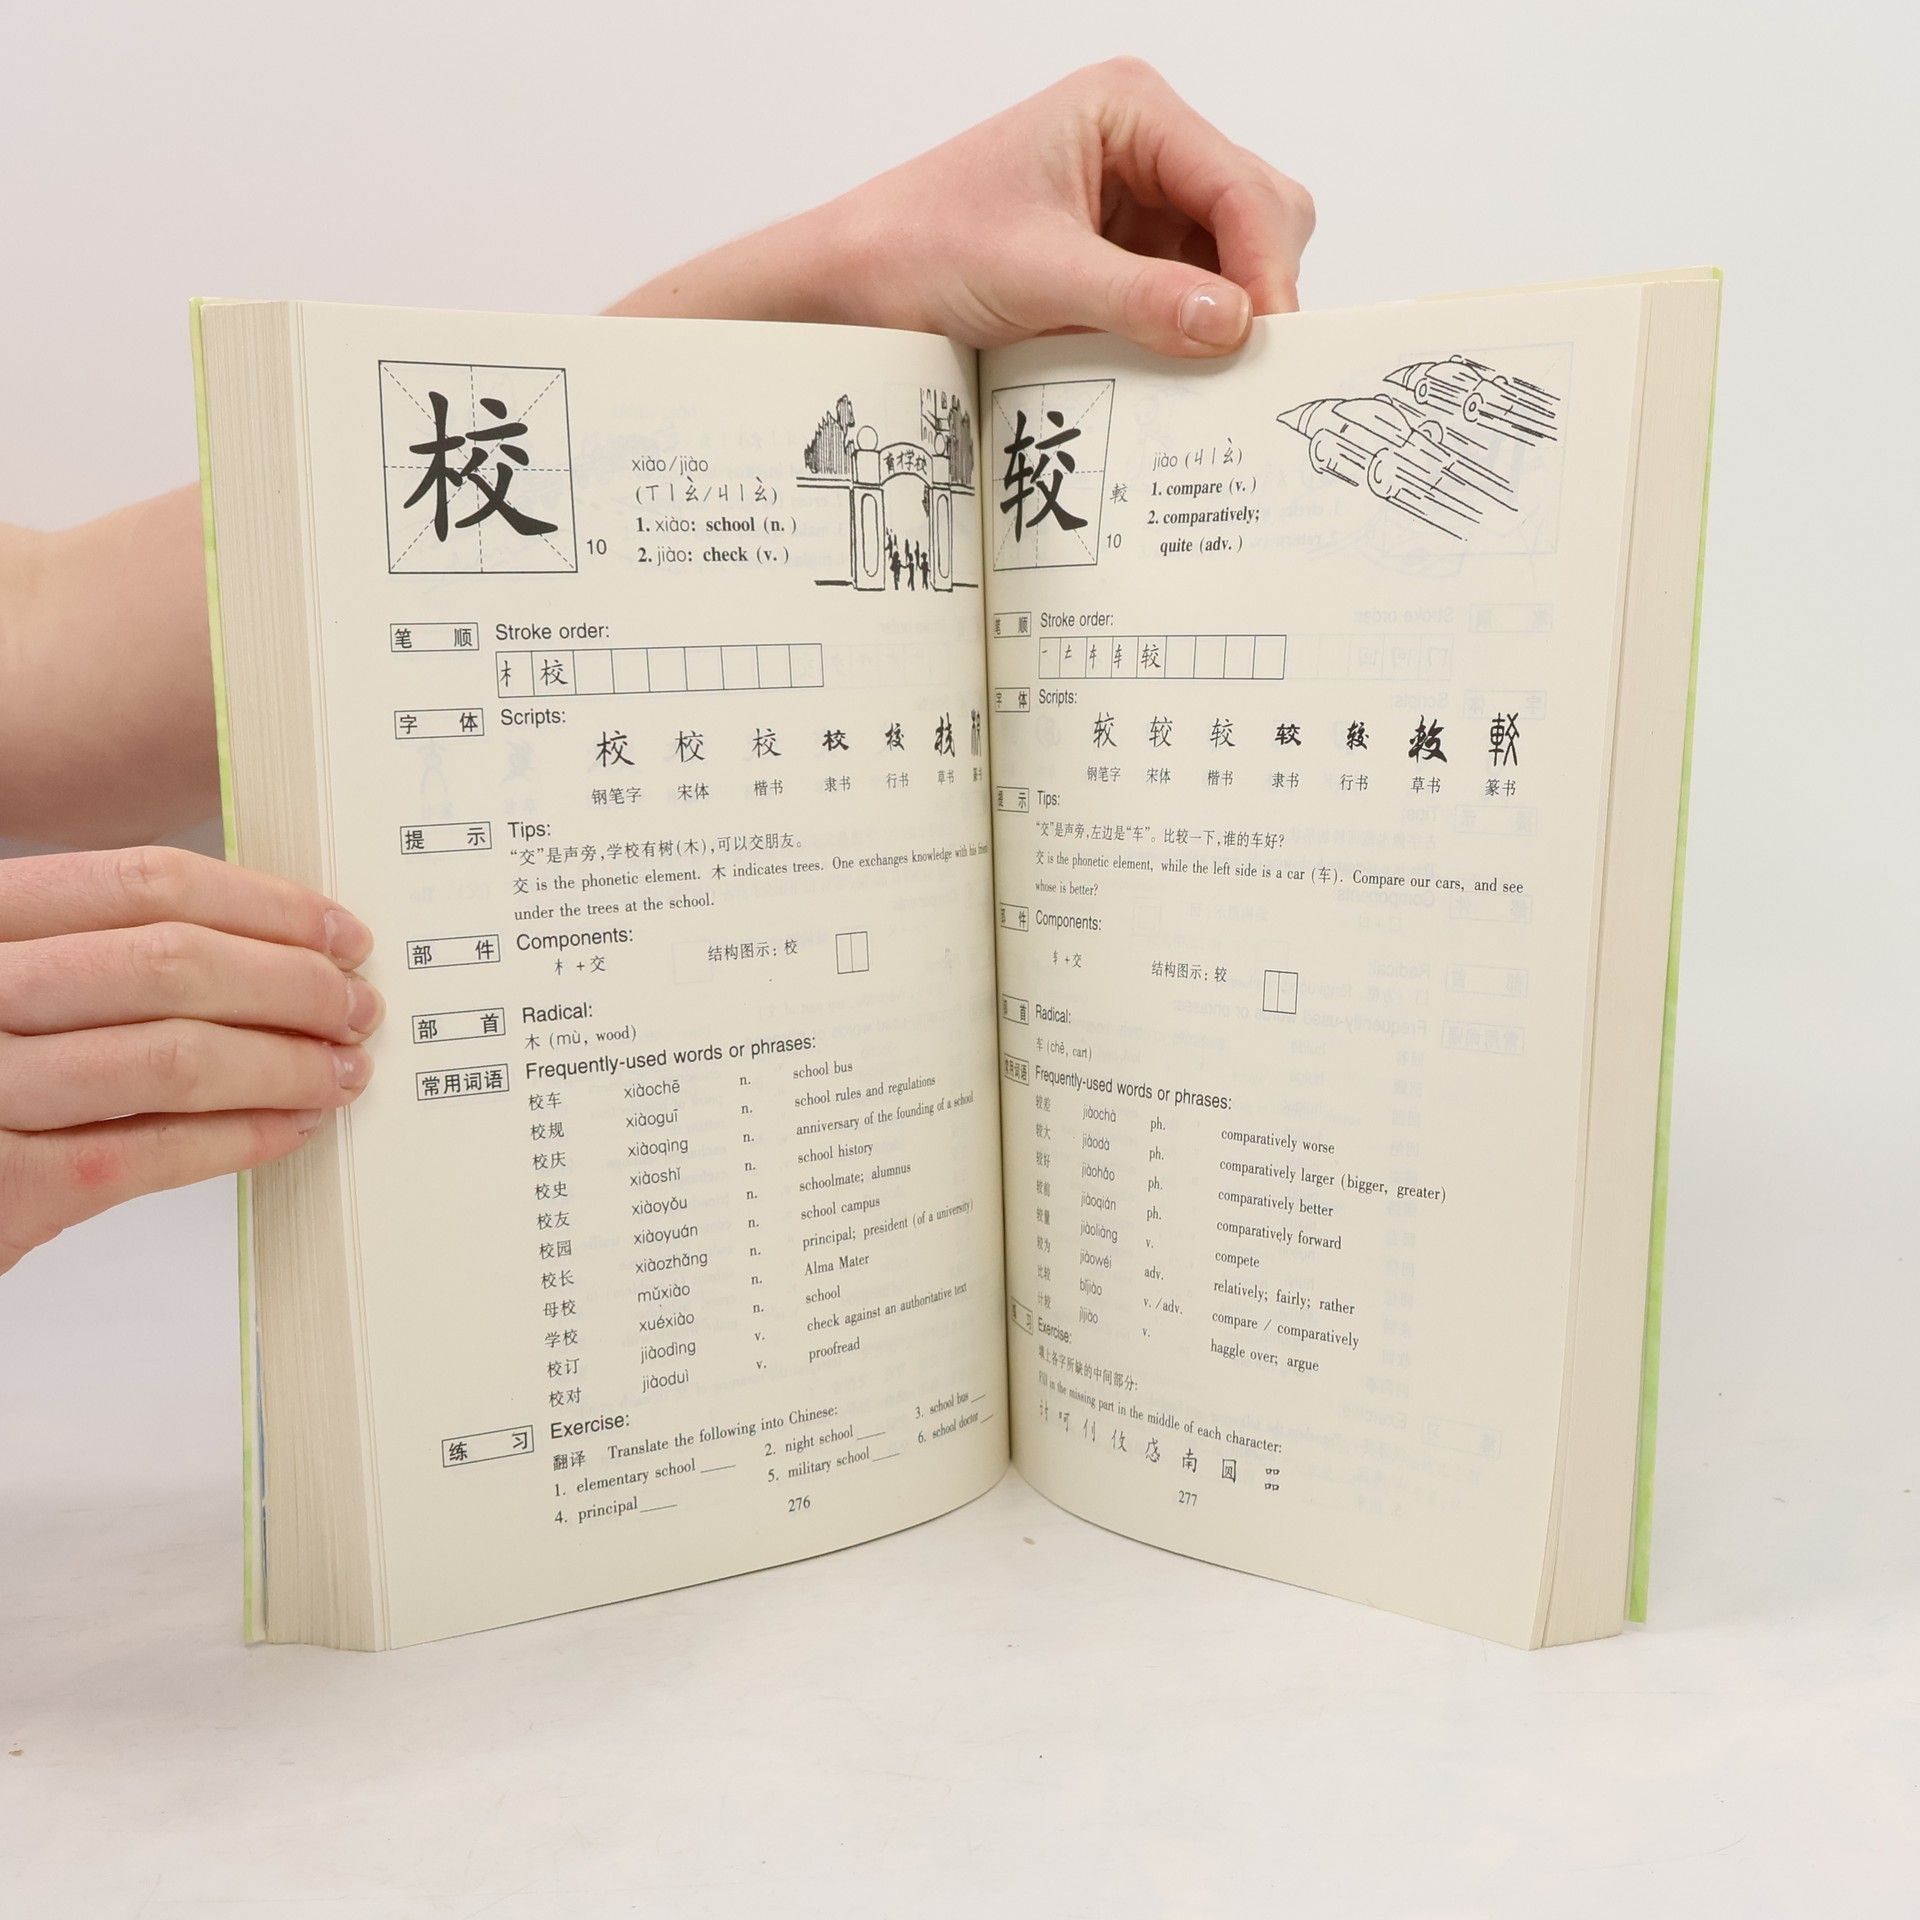 校
10
xiào/jiào
(ㄒㄧㄠˋ/ㄐㄧㄠˋ)
1. xiào: school (n. )
2. jiào: check (v. )
育才学校
笔 顺 Stroke order:
木 校
字 体 Scripts:
校 校 校 校 校 校 校
钢笔字 宋体 楷书 隶书 行书 草书 篆书
提 示 Tips:
“交”是声旁,学校有树(木),可以交朋友。
交 is the phonetic element. 木 indicates trees. One exchanges knowledge with his friends
under the trees at the school.
部 件 Components:
木 + 交 结构图示: 校
部 首 Radical:
木 (mù, wood)
常用词语 Frequently-used words or phrases:
校车 xiàochē n. school bus
校规 xiàoguī n. school rules and regulations
校庆 xiàoqìng n. anniversary of the founding of a school
校史 xiàoshǐ n. school history
校友 xiàoyǒu n. schoolmate; alumnus
校园 xiàoyuán n. school campus
校长 xiàozhǎng n. principal; president (of a university)
母校 mǔxiào n. Alma Mater
学校 xuéxiào n. school
校订 jiàodìng v. check against an authoritative text
校对 jiàoduì v. proofread
练 习 Exercise:
翻译 Translate the following into Chinese:
1. elementary school ____ 2. night school ____ 3. school bus __
4. principal ____ 5. military school ____ 6. school doctor __
276
较
較
10
jiào (ㄐㄧㄠˋ)
1. compare (v. )
2. comparatively;
quite (adv. )
笔 顺 Stroke order:
车 较
字 体 Scripts:
较 较 较 较 较 较 較
钢笔字 宋体 楷书 隶书 行书 草书 篆书
提 示 Tips:
“交”是声旁,左边是“车”。比较一下,谁的车好?
交 is the phonetic element, while the left side is a car (车). Compare our cars, and see
whose is better?
部 件 Components:
车 + 交 结构图示: 较
部 首 Radical:
车 (chē, cart)
常用词语 Frequently-used words or phrases:
较差 jiàochà ph. comparatively worse
较大 jiàodà ph. comparatively larger (bigger, greater)
较好 jiàohǎo ph. comparatively better
较前 jiàoqián ph. comparatively forward
较量 jiàoliàng v. compete
较为 jiàowéi adv. relatively; fairly; rather
比较 bǐjiào v. /adv. compare / comparatively
计较 jìjiào v. haggle over; argue
练 习 Exercise:
填上各字所缺的中间部分:
Fill in the missing part in the middle of each character:
277